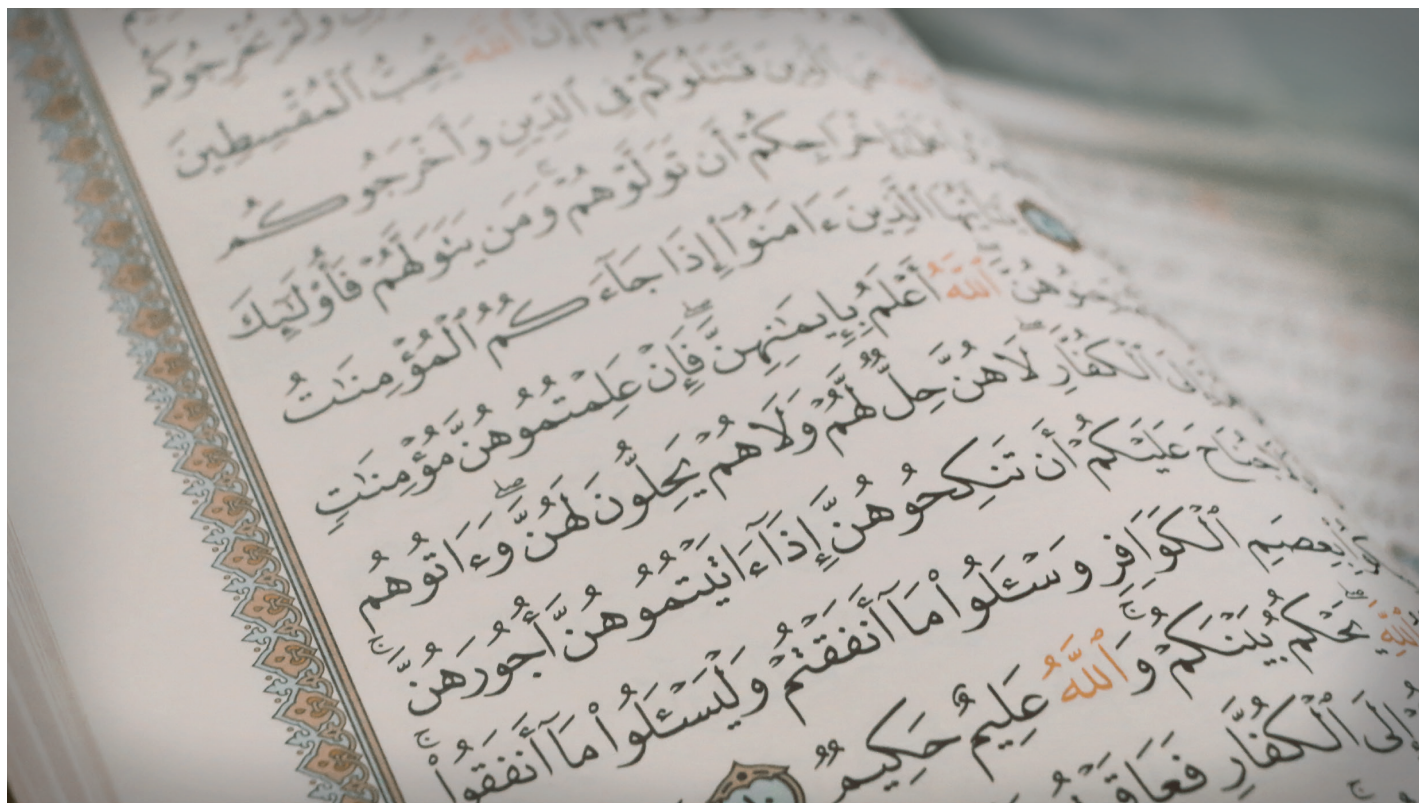 وَلَمْ يُخْرِجُوكُم
إِنَّ ٱللَّهَ يُحِبُّ ٱلْمُقْسِطِينَ
عَنِ ٱلَّذِينَ قَٰتَلُوكُمْ فِى ٱلدِّينِ وَأَخْرَجُوكُم
إِخْرَاجِكُمْ أَن تَوَلَّوْهُمْ ۚ وَمَن يَتَوَلَّهُمْ فَأُو۟لَٰٓئِكَ
يَٰٓأَيُّهَا ٱلَّذِينَ ءَامَنُوٓا۟ إِذَا جَآءَكُمُ ٱلْمُؤْمِنَٰتُ
ٱللَّهُ أَعْلَمُ بِإِيمَٰنِهِنَّ ۖ فَإِنْ عَلِمْتُمُوهُنَّ مُؤْمِنَٰتٍ
ٱلْكُفَّارِ ۖ لَا هُنَّ حِلٌّ لَّهُمْ وَلَا هُمْ يَحِلُّونَ لَهُنَّ ۖ وَءَاتُوهُم
جُنَاحَ عَلَيْكُمْ أَن تَنكِحُوهُنَّ إِذَآ ءَاتَيْتُمُوهُنَّ أُجُورَهُنَّ ۚ
بِعِصَمِ ٱلْكَوَافِرِ وَسْـَٔلُوا۟ مَآ أَنفَقْتُمْ وَلْيَسْـَٔلُوا۟ مَآ أَنفَقُوا۟ ۚ
ٱللَّهِ ۖ يَحْكُمُ بَيْنَكُمْ ۚ وَٱللَّهُ عَلِيمٌ حَكِيمٌ
إِلَى ٱلْكُفَّارِ فَعَاقَبْتُمْ